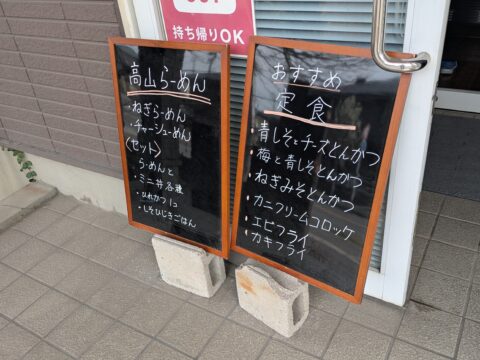 持ち帰りOK
高山らーめん
・ねぎらーめん
・チャーシューめん
〈セット〉
らーめんと
・ミニ丼各種
・ひれかつ1コ
・しそひじきごはん
おすすめ
定食
・青しそとチーズとんかつ
・梅と青しそとんかつ
・ねぎみそとんかつ
・カニクリームコロッケ
・エビフライ
・カキフライ